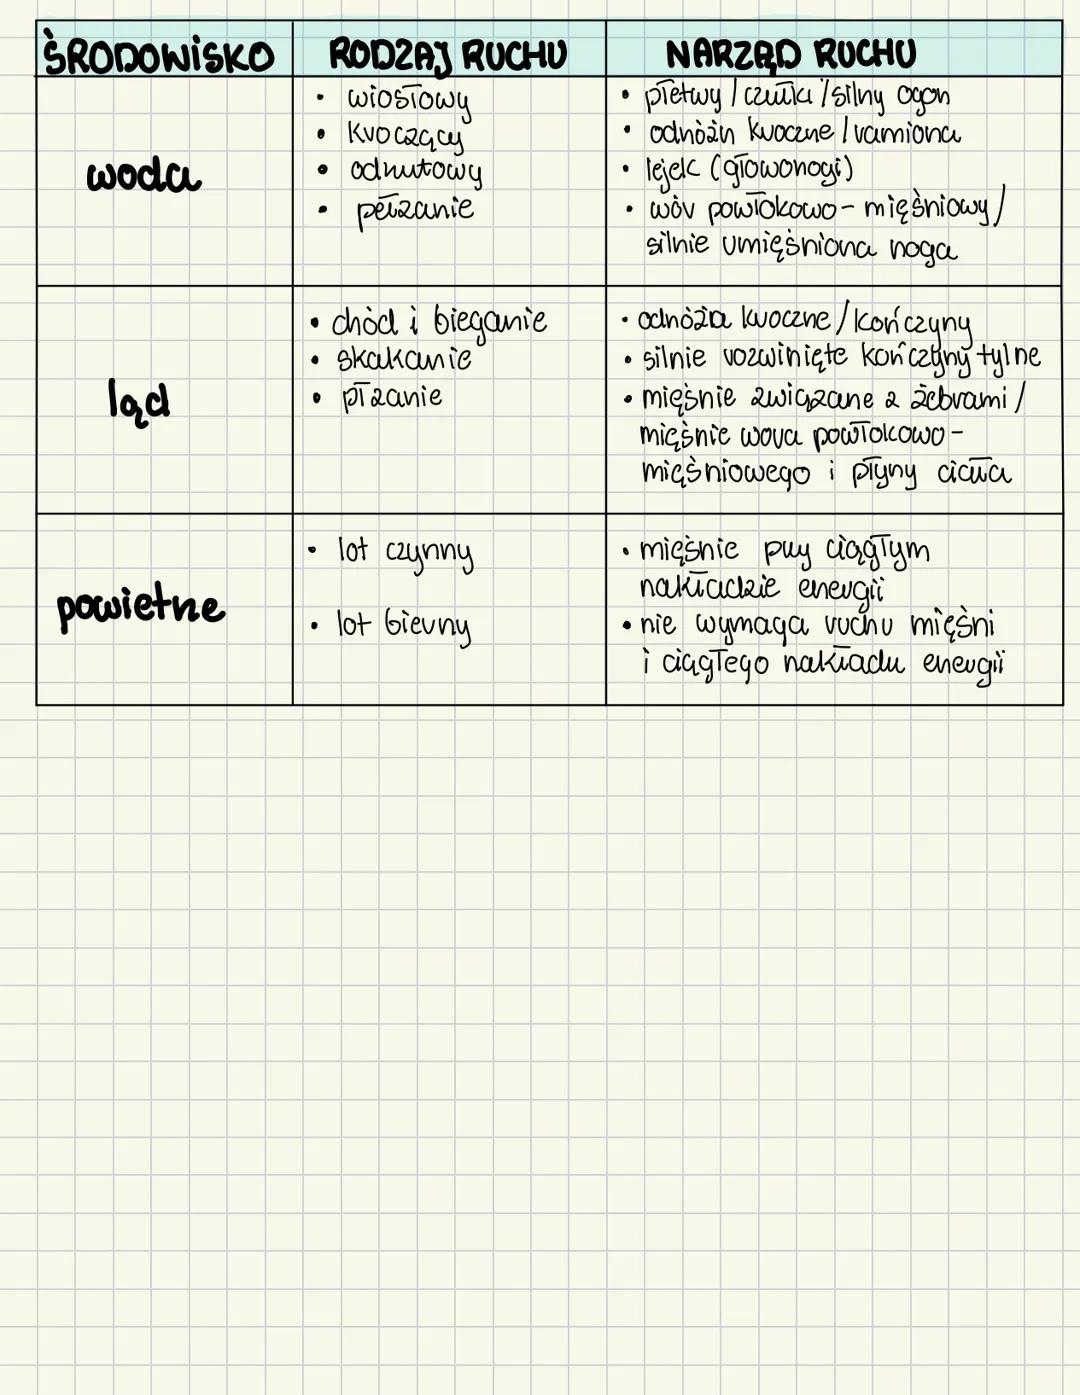 ŚRODOWISKO RODZAJ RUCHU NARZĄD RUCHU
woda
• wiosłowy
• kroczący
• odrzutowy
• pełzanie
• płetwy / czułki / silny ogon
• odnóża kroczne / ramiona
• lejek (głowonogi)
• wór powłokowo - mięśniowy /
silnie umięśniona noga
ląd
• chód i bieganie
• skakanie
• płzanie
• odnóża kroczne / kończyny
• silnie rozwinięte kończyny tylne
• mięśnie związane z żebrami /
mięśnie wora powłokowo -
mięśniowego i płyny ciała
powietrzne
• lot czynny
• lot bierny
• mięśnie przy ciągłym
nakładzie energii
• nie wymaga ruchu mięśni
i ciągłego nakładu energii